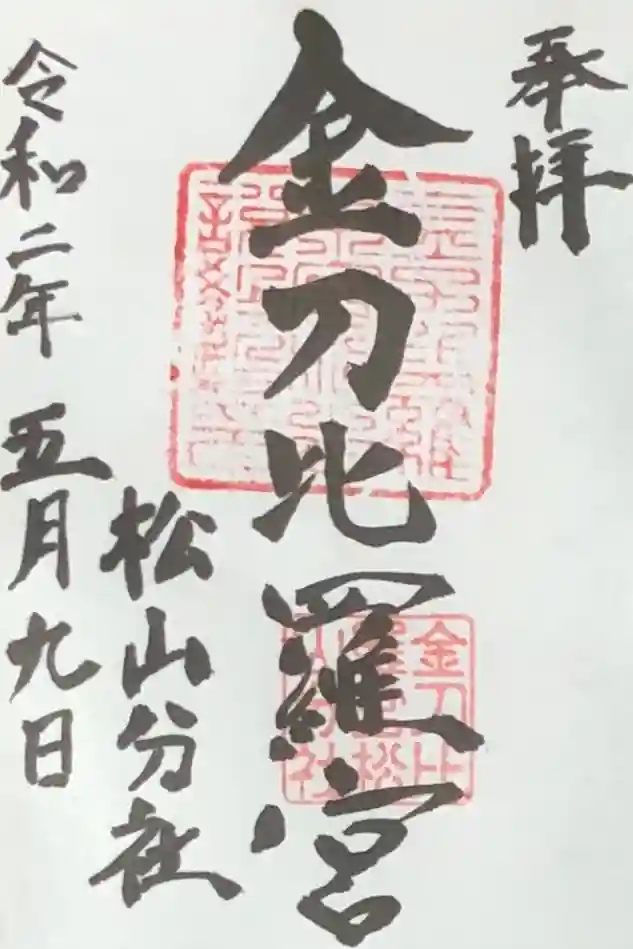 奉拝
金刀比羅宮
松山分社
令和二年五月九日
金刀比
羅宮松
山分社